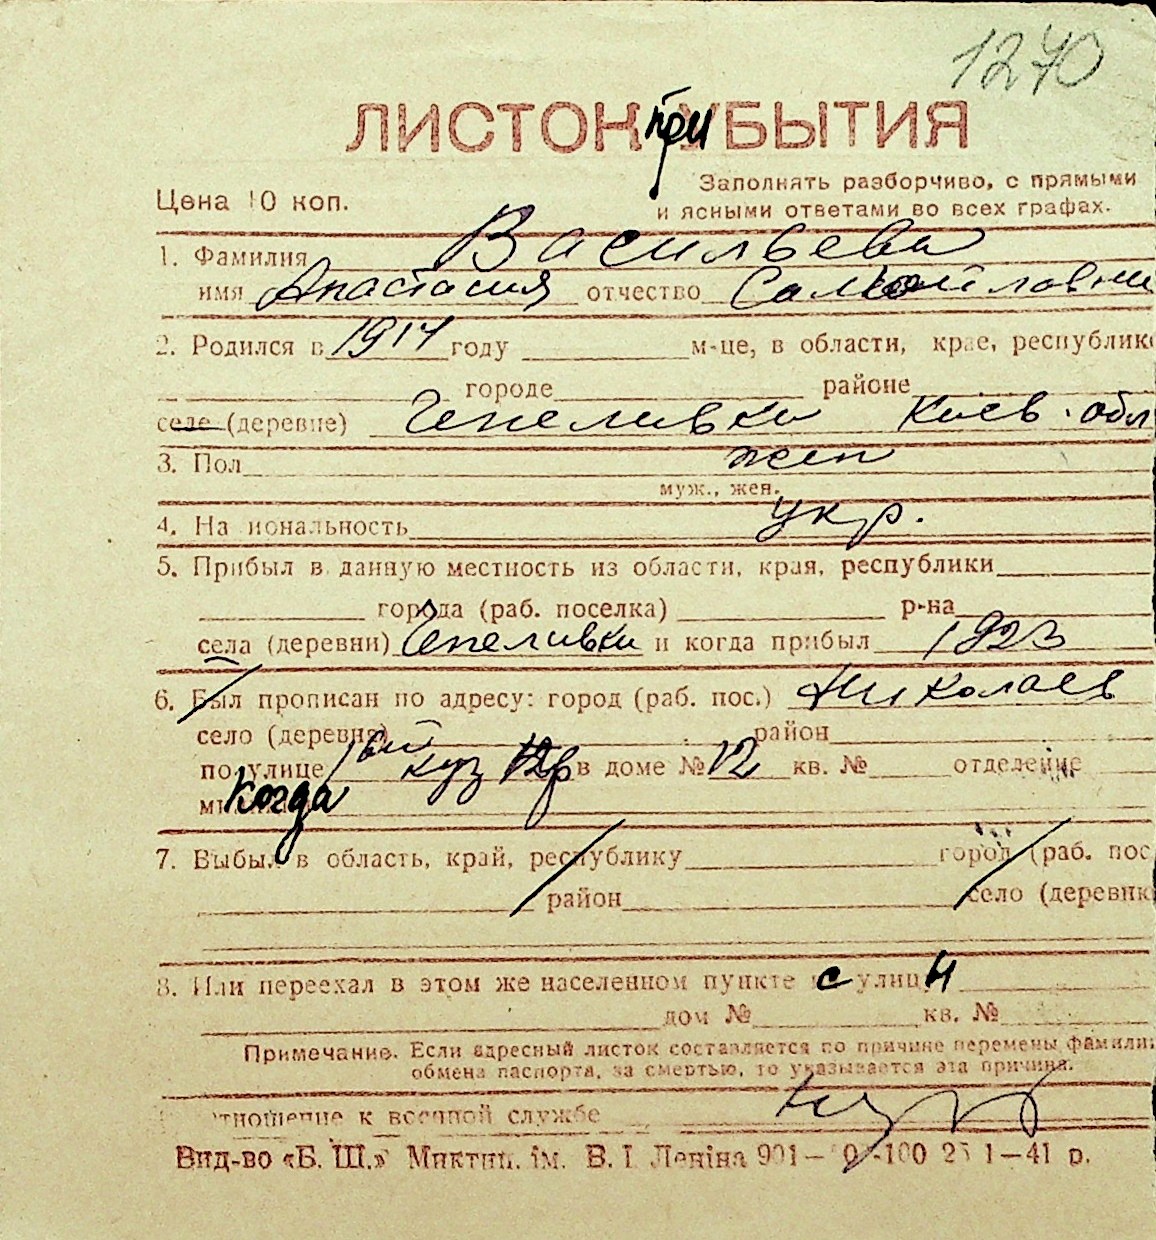 1270
ЛИСТОК при УБЫТИЯ
Цена 10 коп.
Заполнять разборчиво, с прямыми
и ясными ответами во всех графах.
1. Фамилия Васильева
имя Анастасия отчество Самойловни
2. Родился в 1914 году м-це, в области, крае, республике
городе районе
селе (деревне) Чепеливки Киев. обл
3. Пол жен
муж., жен.
4. Национальность укр.
5. Прибыл в данную местность из области, края, республики
города (раб. поселка) р-на
села (деревни) Чепеливки и когда прибыл 1923
6. Был прописан по адресу: город (раб. пос.) Николаев
село (деревня) район
по улице куз в доме № 12 кв. № отделение
когда
7. Выбыл в область, край, республику город (раб. пос
район село (деревня
8. Или переехал в этом же населенном пункте с улици
дом № кв. №
Примечание. Если адресный листок составляется по причине перемены фамилии
обмена паспорта, за смертью, то указывается эта причина.
отношение к военной службе
Вид-во «Б. Ш.» Миктип. ім. В. І Леніна 901— -100 25 1—41 р.